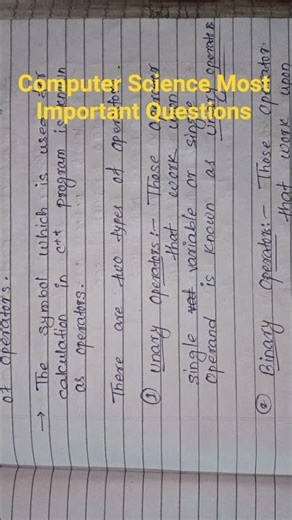 Computer Science Most
Important Questions
of operators.
→ The symbol which is used for
calculation in c++ program is known
as operators.
There are two types of operators.
① Unary operators:- Those operator
that work upon
single variable or single
operand is known as unary operator
② Binary operator:- Those operator.
that work upon